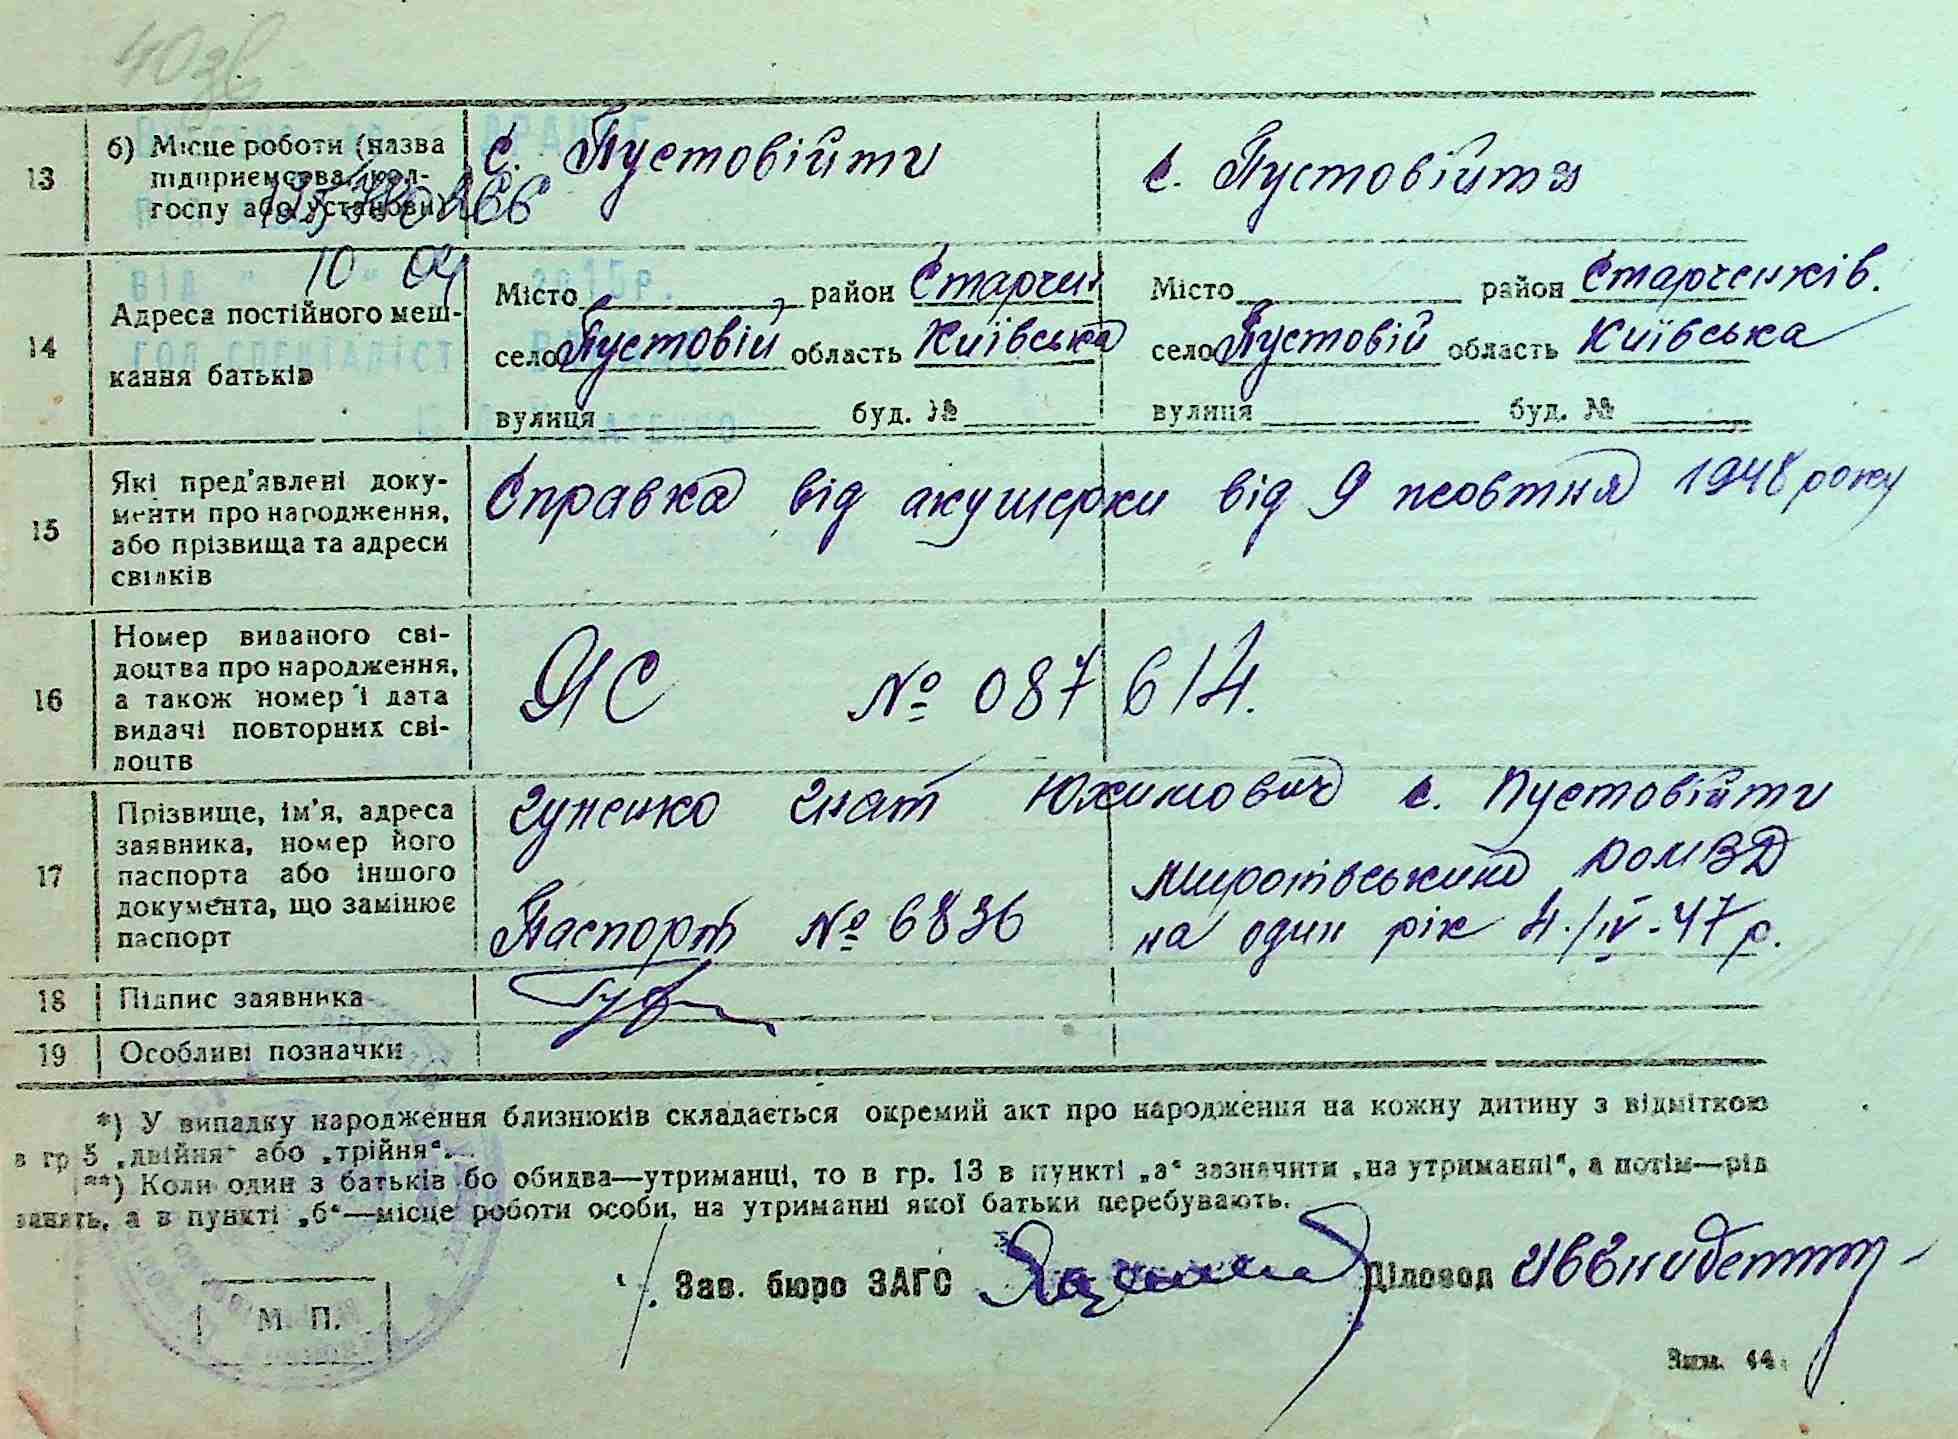 40зв
13 б) Місце роботи (назва підприємства, кол-
госпу або установи)
с. Пустовійти
с. Пустовійти
10 04
2015р.
14 Адреса постійного меш-
кання батьків
Місто район Старчен
село Пустовій область Київська
вулиця буд. №
Місто район Старченків.
село Пустовій область Київська
вулиця буд. №
15 Які пред'явлені доку-
менти про народження,
або прізвища та адреси
свідків
Справка від акушерки від 9 жовтня 1948 року
16 Номер виданого сві-
доцтва про народження,
а також номер і дата
видачі повторних сві-
доцтв
ЯС № 087 614.
17 Прізвище, ім'я, адреса
заявника, номер його
паспорта або іншого
документа, що замінює
паспорт
Гуненко Гнат Юхимович с. Пустовійти
Паспорт № 6836
Миротівський РОМВД
на один рік 4./IV-47 р.
18 Підпис заявника
19 Особливі позначки
*) У випадку народження близнюків складається окремий акт про народження на кожну дитину з відміткою
в гр 5 „двійня“ або „трійня“.
**) Коли один з батьків бо обидва—утриманці, то в гр. 13 в пункті „а“ зазначити „на утриманні“, а потім—рід
занять, а в пункті „б“—місце роботи особи, на утриманні якої батьки перебувають.
Зав. бюро ЗАГС
Діловод
М. П.
Зам. 44